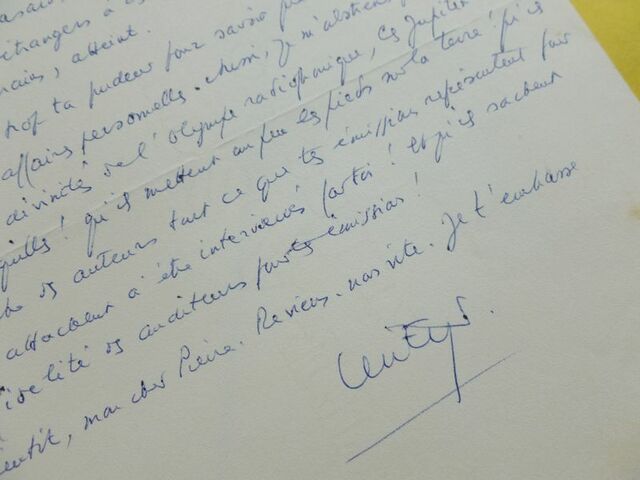 étrangers à
, atteint.
trop ta pudeur pour savoir
affaires personnelles. Aussi, je m'abstiens
divinités de l'Olympe radiophonique, ces Jupiter
! qu'ils mettent un peu les pieds sur la terre! qu'ils
des auteurs tout ce que tes émissions représentent pour
attachent à être interviewés par toi! et qu'ils sachent
fidélité des auditeurs pour tes émissions!
bientôt, mon cher Pierre. Reviens-nous vite. Je t'embrasse